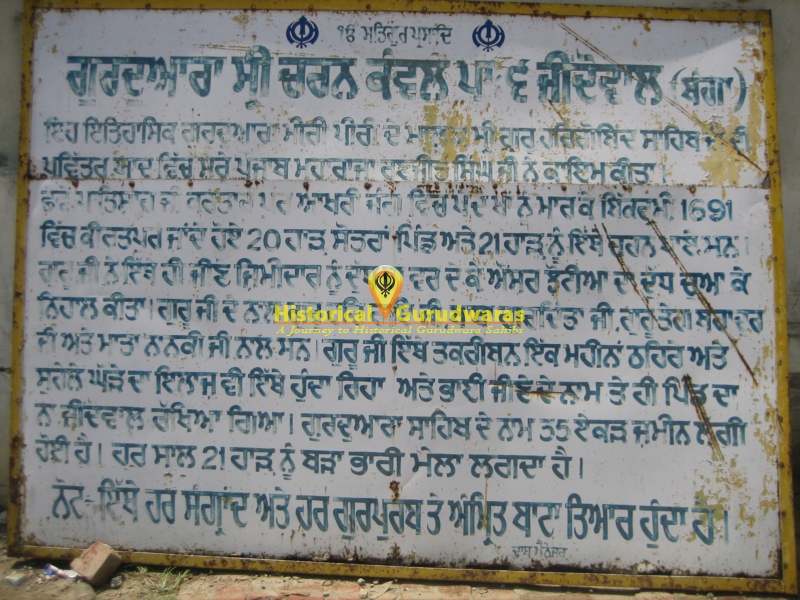 ੴ ਸਤਿਗੁਰ ਪ੍ਰਸਾਦਿ
ਗੁਰਦੁਆਰਾ ਸ੍ਰੀ ਚਰਨ ਕੰਵਲ ਜੀਂਦੋਵਾਲ (ਬੰਗਾ)
ਇਹ ਇਤਿਹਾਸਿਕ ਗੁਰਦੁਆਰਾ ਮੀਰੀ ਪੀਰੀ ਦੇ ਮਾਲਕ ਸ੍ਰੀ ਗੁਰੂ ਹਰਿਗੋਬਿੰਦ ਸਾਹਿਬ ਜੀ ਦੀ
ਪਵਿੱਤਰ ਯਾਦ ਵਿੱਚ ਸ਼ੇਰੇ ਪੰਜਾਬ ਮਹਾਰਾਜਾ ਰਣਜੀਤ ਸਿੰਘ ਜੀ ਨੇ ਕਾਇਮ ਕੀਤਾ।
ਪਾਤਿਸ਼ਾਹ ਜੀ ਕਰਤਾਰਪੁਰ ਆਖਰੀ ਜੰਗ ਵਿੱਚ ਪੈਂਦੇ ਖਾਂ ਨੂੰ ਮਾਰ ਕੇ ਬਿਕਰਮੀ 1691
ਵਿੱਚ ਕੀਰਤਪੁਰ ਜਾਂਦੇ ਹੋਏ 20 ਹਾੜ ਸੋਤਰਾਂ ਪਿੰਡ ਅਤੇ 21 ਹਾੜ ਨੂੰ ਇੱਥੇ ਚਰਨ ਪਾਏ ਸਨ।
ਗੁਰੂ ਜੀ ਨੇ ਇੱਥੇ ਹੀ ਜੀਂਦੇ ਜਿਮੀਦਾਰ ਨੂੰ ਵਰ ਦੇ ਕੇ ਦਾ ਦੁੱਧ ਚੁਆ ਕੇ
ਨਿਹਾਲ ਕੀਤਾ। ਗੁਰੂ ਜੀ ਦੇ ਨਾਲ ਜੀ, ਗੁਰੂ ਤੇਗ ਬਹਾਦਰ
ਜੀ ਅਤੇ ਮਾਤਾ ਨਾਨਕੀ ਜੀ ਨਾਲ ਸਨ। ਗੁਰੂ ਜੀ ਇੱਥੇ ਤਕਰੀਬਨ ਇੱਕ ਮਹੀਨਾਂ ਠਹਿਰੇ ਅਤੇ
ਸੁਹੇਲੇ ਘੋੜੇ ਦਾ ਇਲਾਜ ਵੀ ਇੱਥੇ ਹੁੰਦਾ ਰਿਹਾ ਅਤੇ ਭਾਈ ਜੀਂਦੇ ਦੇ ਨਾਮ ਤੇ ਹੀ ਪਿੰਡ ਦਾ
ਨਾਂ ਜੀਂਦੋਵਾਲ ਰੱਖਿਆ ਗਿਆ। ਗੁਰਦੁਆਰਾ ਸਾਹਿਬ ਦੇ ਨਾਮ 55 ਏਕੜ ਜ਼ਮੀਨ ਲੱਗੀ
ਹੋਈ ਹੈ। ਹਰ ਸਾਲ 21 ਹਾੜ ਨੂੰ ਬੜਾ ਭਾਰੀ ਮੇਲਾ ਲਗਦਾ ਹੈ।
ਨੋਟ- ਇੱਥੇ ਹਰ ਸੰਗ੍ਰਾਂਦ ਅਤੇ ਹਰ ਗੁਰਪੁਰਬ ਤੇ ਅੰਮ੍ਰਿਤ ਬਾਟਾ ਤਿਆਰ ਹੁੰਦਾ ਹੈ।
ਦਾਸ ਮੈਨੇਜਰ
Historical Gurudwaras
A Journey to Historical Gurudwara Sahibs